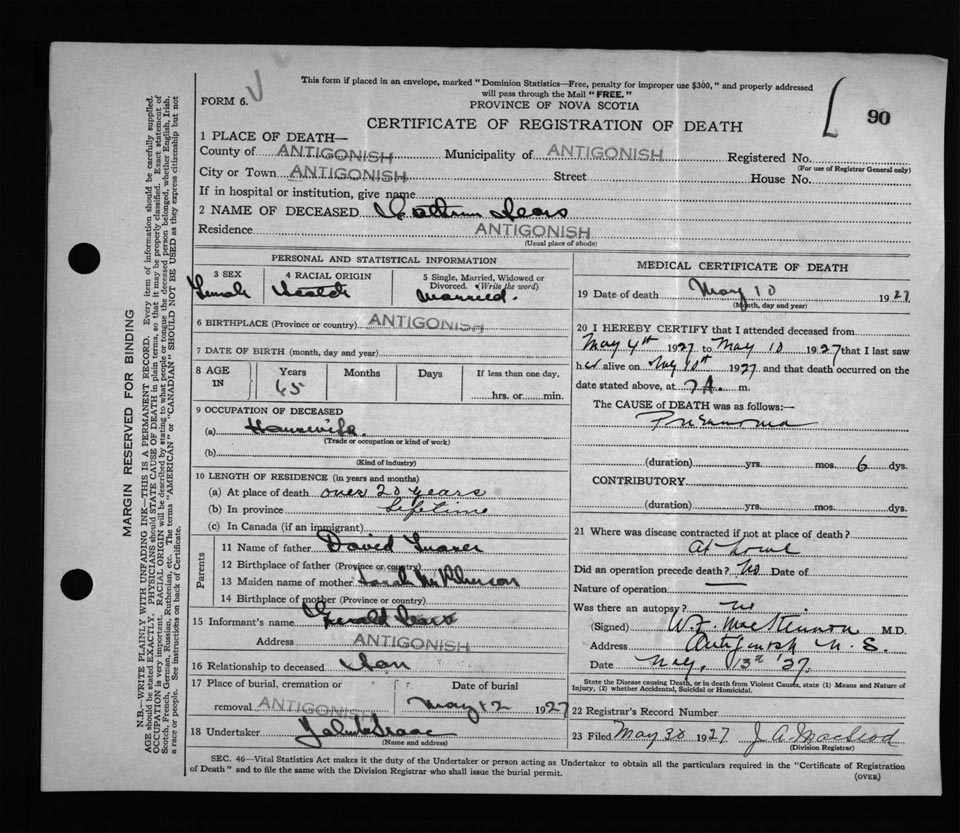 This form if placed in an envelope, marked "Dominion Statistics—Free, penalty for improper use $300," and properly addressed
will pass through the Mail "FREE."
FORM 6.
PROVINCE OF NOVA SCOTIA
90
CERTIFICATE OF REGISTRATION OF DEATH
1 PLACE OF DEATH—
County of ANTIGONISH Municipality of ANTIGONISH Registered No.
(For use of Registrar General only)
City or Town ANTIGONISH Street House No.
If in hospital or institution, give name
2 NAME OF DECEASED Sears
Residence ANTIGONISH
(Usual place of abode)
PERSONAL AND STATISTICAL INFORMATION
3 SEX
Female
4 RACIAL ORIGIN
Scotch
5 Single, Married, Widowed or
Divorced. (Write the word)
Married.
6 BIRTHPLACE (Province or country) ANTIGONISH
7 DATE OF BIRTH (month, day and year)
8 AGE
IN
Years
65
Months
Days
If less than one day,
hrs. or min.
9 OCCUPATION OF DECEASED
(a) Housewife.
(Trade or occupation or kind of work)
(b)
(Kind of industry)
10 LENGTH OF RESIDENCE (in years and months)
(a) At place of death over 20 years
(b) In province Lifetime
(c) In Canada (if an immigrant)
Parents
11 Name of father David
12 Birthplace of father (Province or country)
13 Maiden name of mother Sarah McPherson
14 Birthplace of mother (Province or country)
15 Informant's name Gerald Sears
Address ANTIGONISH
16 Relationship to deceased Son
17 Place of burial, cremation or
removal ANTIGONISH
Date of burial
May 12 1927
18 Undertaker
(Name and address)
MEDICAL CERTIFICATE OF DEATH
19 Date of death May 10 1927
(Month, day and year)
20 I HEREBY CERTIFY that I attended deceased from
May 4th 1927 to May 10 1927 that I last saw
her alive on May 10th 1927 and that death occurred on the
date stated above, at 7 A. m.
The CAUSE OF DEATH was as follows:—
Pneumonia
(duration) yrs. mos. 6 dys.
CONTRIBUTORY
(duration) yrs. mos. dys.
21 Where was disease contracted if not at place of death?
At home
Did an operation precede death? No Date of
Nature of operation —
Was there an autopsy? no.
(Signed) W.F. MacKinnon M.D.
Address Antigonish N.S.
Date May, 13th '27.
State the Disease causing Death, or in death from Violent Causes, state (1) Means and Nature of
Injury, (2) whether Accidental, Suicidal or Homicidal.
22 Registrar's Record Number
23 Filed May 30 1927 J. A. MacLeod
(Division Registrar)
SEC. 46—Vital Statistics Act makes it the duty of the Undertaker or person acting as Undertaker to obtain all the particulars required in the "Certificate of Registration
of Death" and to file the same with the Division Registrar who shall issue the burial permit.
(OVER)
MARGIN RESERVED FOR BINDING
N.B.—WRITE PLAINLY WITH UNFADING INK—THIS IS A PERMANENT RECORD. Every item of information should be carefully supplied.
AGE should be stated EXACTLY. PHYSICIANS should STATE CAUSE OF DEATH in plain terms, so that it may be properly classified. Exact statement of
OCCUPATION is very important. RACIAL ORIGIN will be described by stating to what people or tongue the deceased person belonged, whether English, Irish,
Scotch, French, German, Russian, Ruthenian, etc. The terms "AMERICAN" or "CANADIAN" SHOULD NOT BE USED as they express citizenship but not
a race or people. See instructions on back of Certificate.